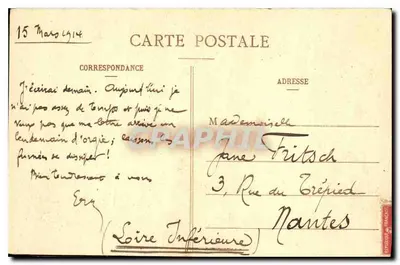 15 Mars 1914
CARTE POSTALE
CORRESPONDANCE
ADRESSE
J'écrirai demain. Aujourd'hui je
n'ai pas assez de temps et puis je ne
veux pas que ma lettre arrive un
lendemain d'orgie; laissons les
fumées se dissiper!
Bien tendrement à vous
Mademoiselle
Jane Fritsch
3, Rue du Trépied
Nantes
(Loire Inférieure)